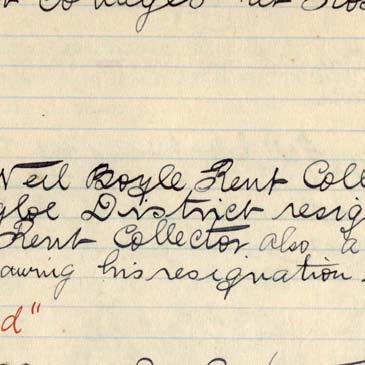 Neil Boyle, Rent Coll
gloe District resig
Rent Collector also a
awing his resignation.
d"